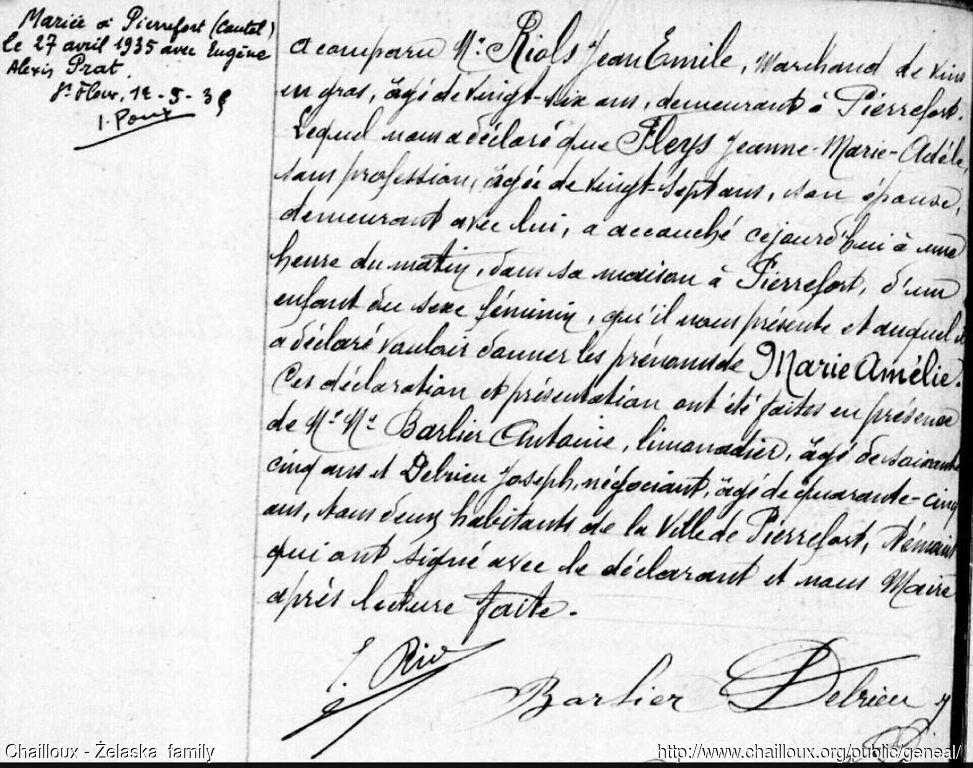 Mariée à Pierrefort (Cantal)
le 27 avril 1935 avec Eugène
Alexis Prat.
St Flour, 12-5-35
a comparu Mr. Riols Jean Emile, Marchand de vins
en gros, âgé de vingt-six ans, demeurant à Pierrefort.
Lequel nous a déclaré que Fleys Jeanne-Marie-Adèle,
sans profession, âgée de vingt-sept ans, son épouse,
demeurant avec lui, a accouché cejourd'hui à une
heure du matin, dans sa maison à Pierrefort, d'un
enfant du sexe féminin, qu'il nous présente et auquel il
a déclaré vouloir donner les prénoms de Marie Amélie.
Ces déclaration et présentation ont été faites en présence
de Mr. Mr. Barlier Antoine, limonadier, âgé de soixante
cinq ans et Delrieu Joseph, négociant, âgé de quarante-cinq
ans, tous deux habitants de la Ville de Pierrefort, témoins
qui ont signé avec le déclarant et nous Maire
après lecture faite.
Barlier Delrieu J
Chailloux - Želaska family http://www.chailloux.org/public/geneal/